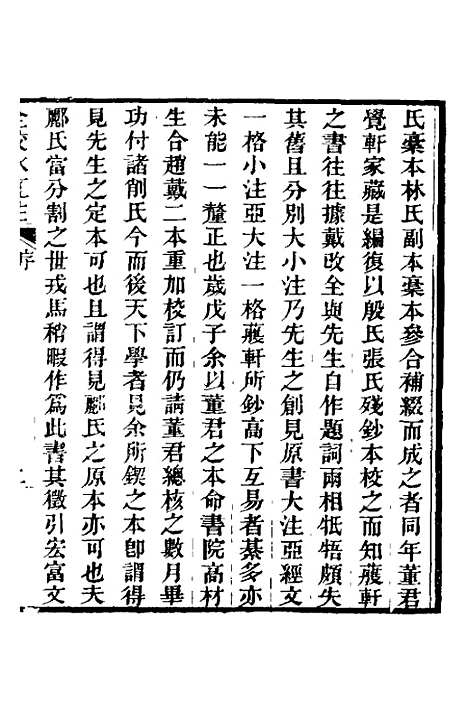 氏稾本林氏副本稾本參合補綴而成之者同年董君
覺軒家藏是編復以殷氏張氏殘鈔本校之而知䕶軒
之書往往據戴改全與先生自作題詞兩相牴牾頗失
其舊且分別大小注乃先生之創見原書大注亞經文
一格小注亞大注一格䕶軒所鈔高下互易者綦多亦
未能一一釐正也歲戊子余以董君之本命書院高材
生合趙戴二本重加校訂而仍請董君總核之數月畢
功付諸削氏今而後天下學者見余所鍥之本卽謂得
見先生之定本可也且謂得見酈氏之原本亦可也夫
酈氏當分割之世戎馬稍暇作爲此書其徵引宏富文
序